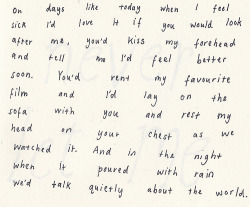 on days like today when I feel
sick I'd love it if you would look
after me, you'd kiss my forehead
and tell me I'd feel better
soon. You'd rent my favourite
film and I'd lay on the
sofa with you and rest my
head on your chest as we
watched it. And in the night
when it poured with rain
we'd talk quietly about the world.